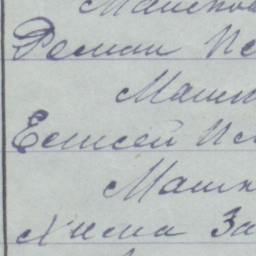 Машков
Роман Ис
Машк
Елисей Ис
Машк
Хима За